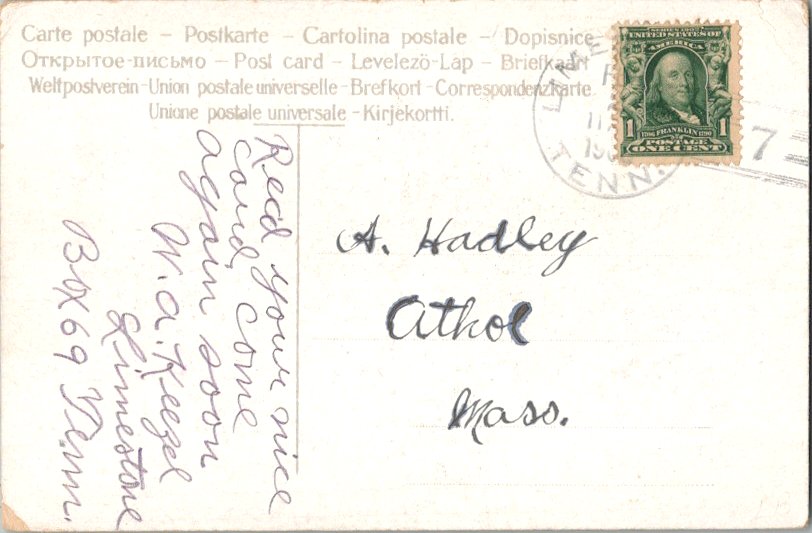 Carte postale – Postkarte – Cartolina postale – Dopisnice
Открытое-письмо – Post card – Levelezö-Lap – Briefkaart
Weltpostverein-Union postale universelle-Brefkort-Correspondenzkarte.
Unione postale universale-Kirjekortti.
SERIES 1902
UNITED STATES OF
AMERICA
1706 FRANKLIN 1790
1 1
POSTAGE
ONE CENT
TENN.
7
A. Hadley
Athol
Mass.
Recd your nice
card, come
again soon
W. A. Keezel
Limestone
Box 69 Tenn.